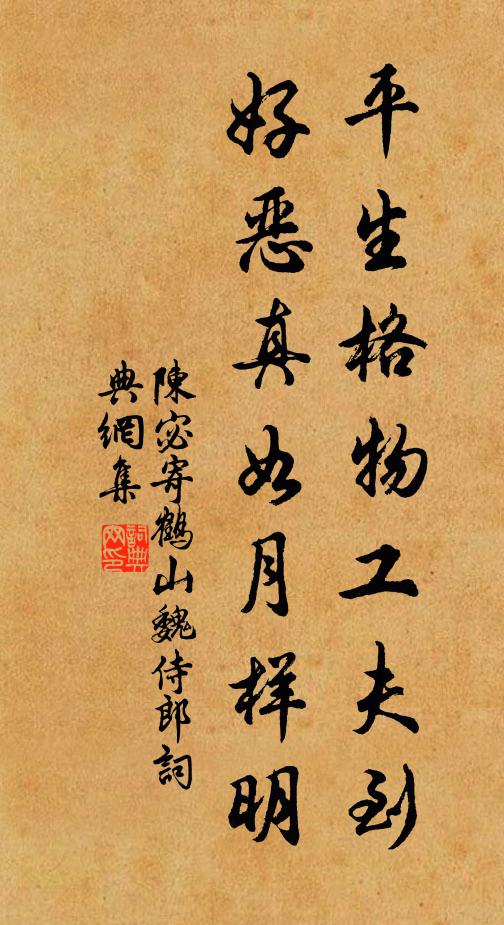 平生格物工夫到
好惡真如月样明
陳宓寄鶴山魏侍郎詞
典網集
詞典網印